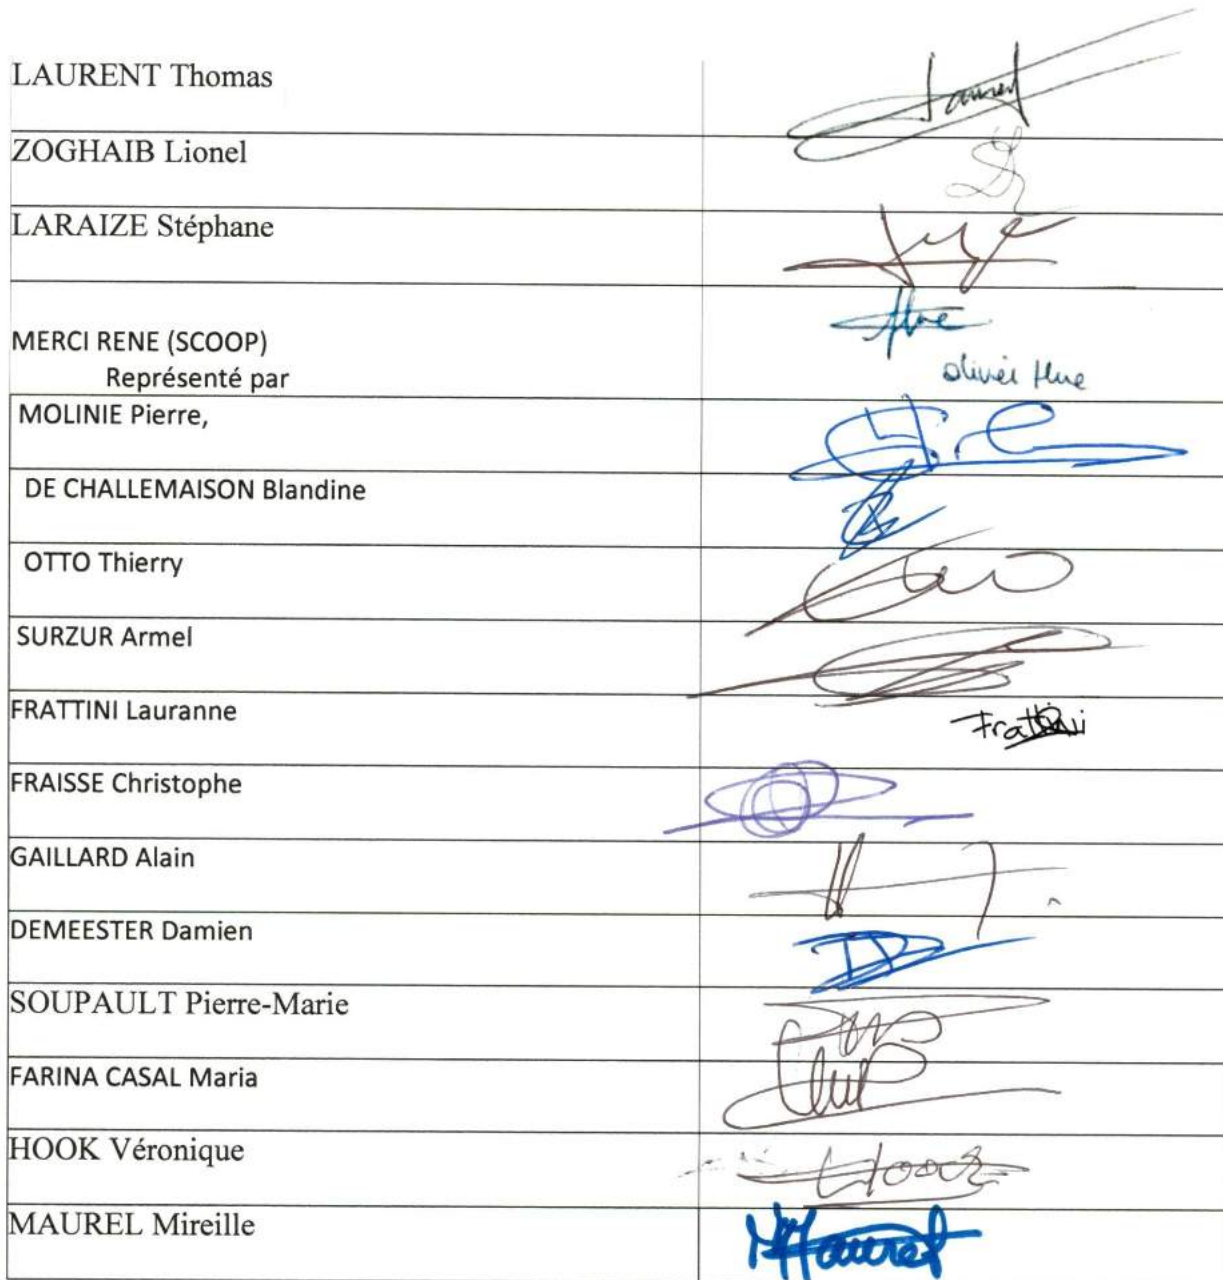 LAURENT Thomas
Laurent
ZOGHAIB Lionel
LARAIZE Stéphane
MERCI RENE (SCOOP)
Représenté par
Hue
olivier Hue
MOLINIE Pierre,
DE CHALLEMAISON Blandine
OTTO Thierry
SURZUR Armel
FRATTINI Lauranne
Frattini
FRAISSE Christophe
GAILLARD Alain
DEMEESTER Damien
SOUPAULT Pierre-Marie
FARINA CASAL Maria
HOOK Véronique
Hook
MAUREL Mireille
Maurel